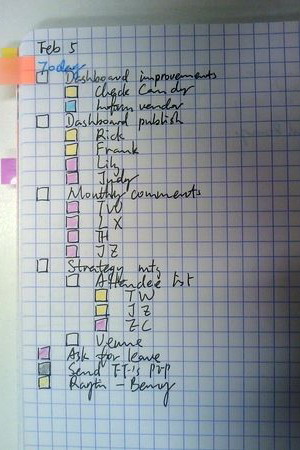 Feb 5
Today
Dashboard improvements
Check Candy
vendor
Dashboard publish
Rick
Frank
Lily
Judy
Monthly comments
TW
LX
TH
JZ
Strategy mtg
Attendee list
TW
JZ
ZC
Venue
Ask for leave
Send
- Benny